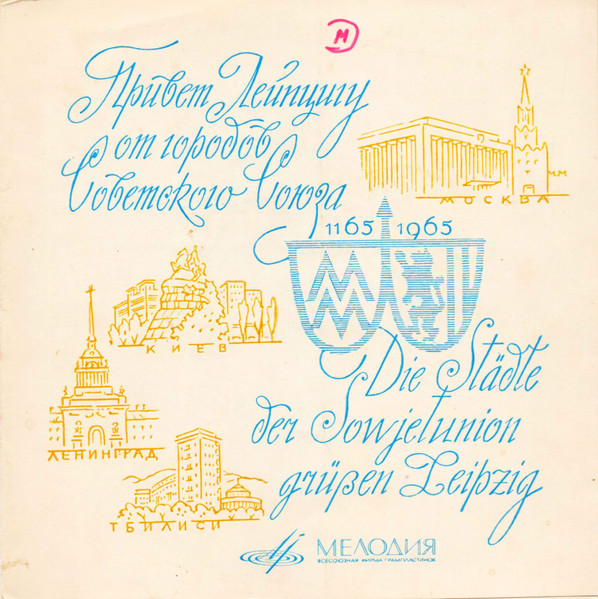 М
Привет Лейпцигу
от городов
Советского Союза
МОСКВА
1165 1965
MM
КИЕВ
Die Städte
der Sowjetunion
grüßen Leipzig
ЛЕНИНГРАД
ТБИЛИСИ
МЕЛОДИЯ
ВСЕСОЮЗНАЯ ФИРМА ГРАМПЛАСТИНОК